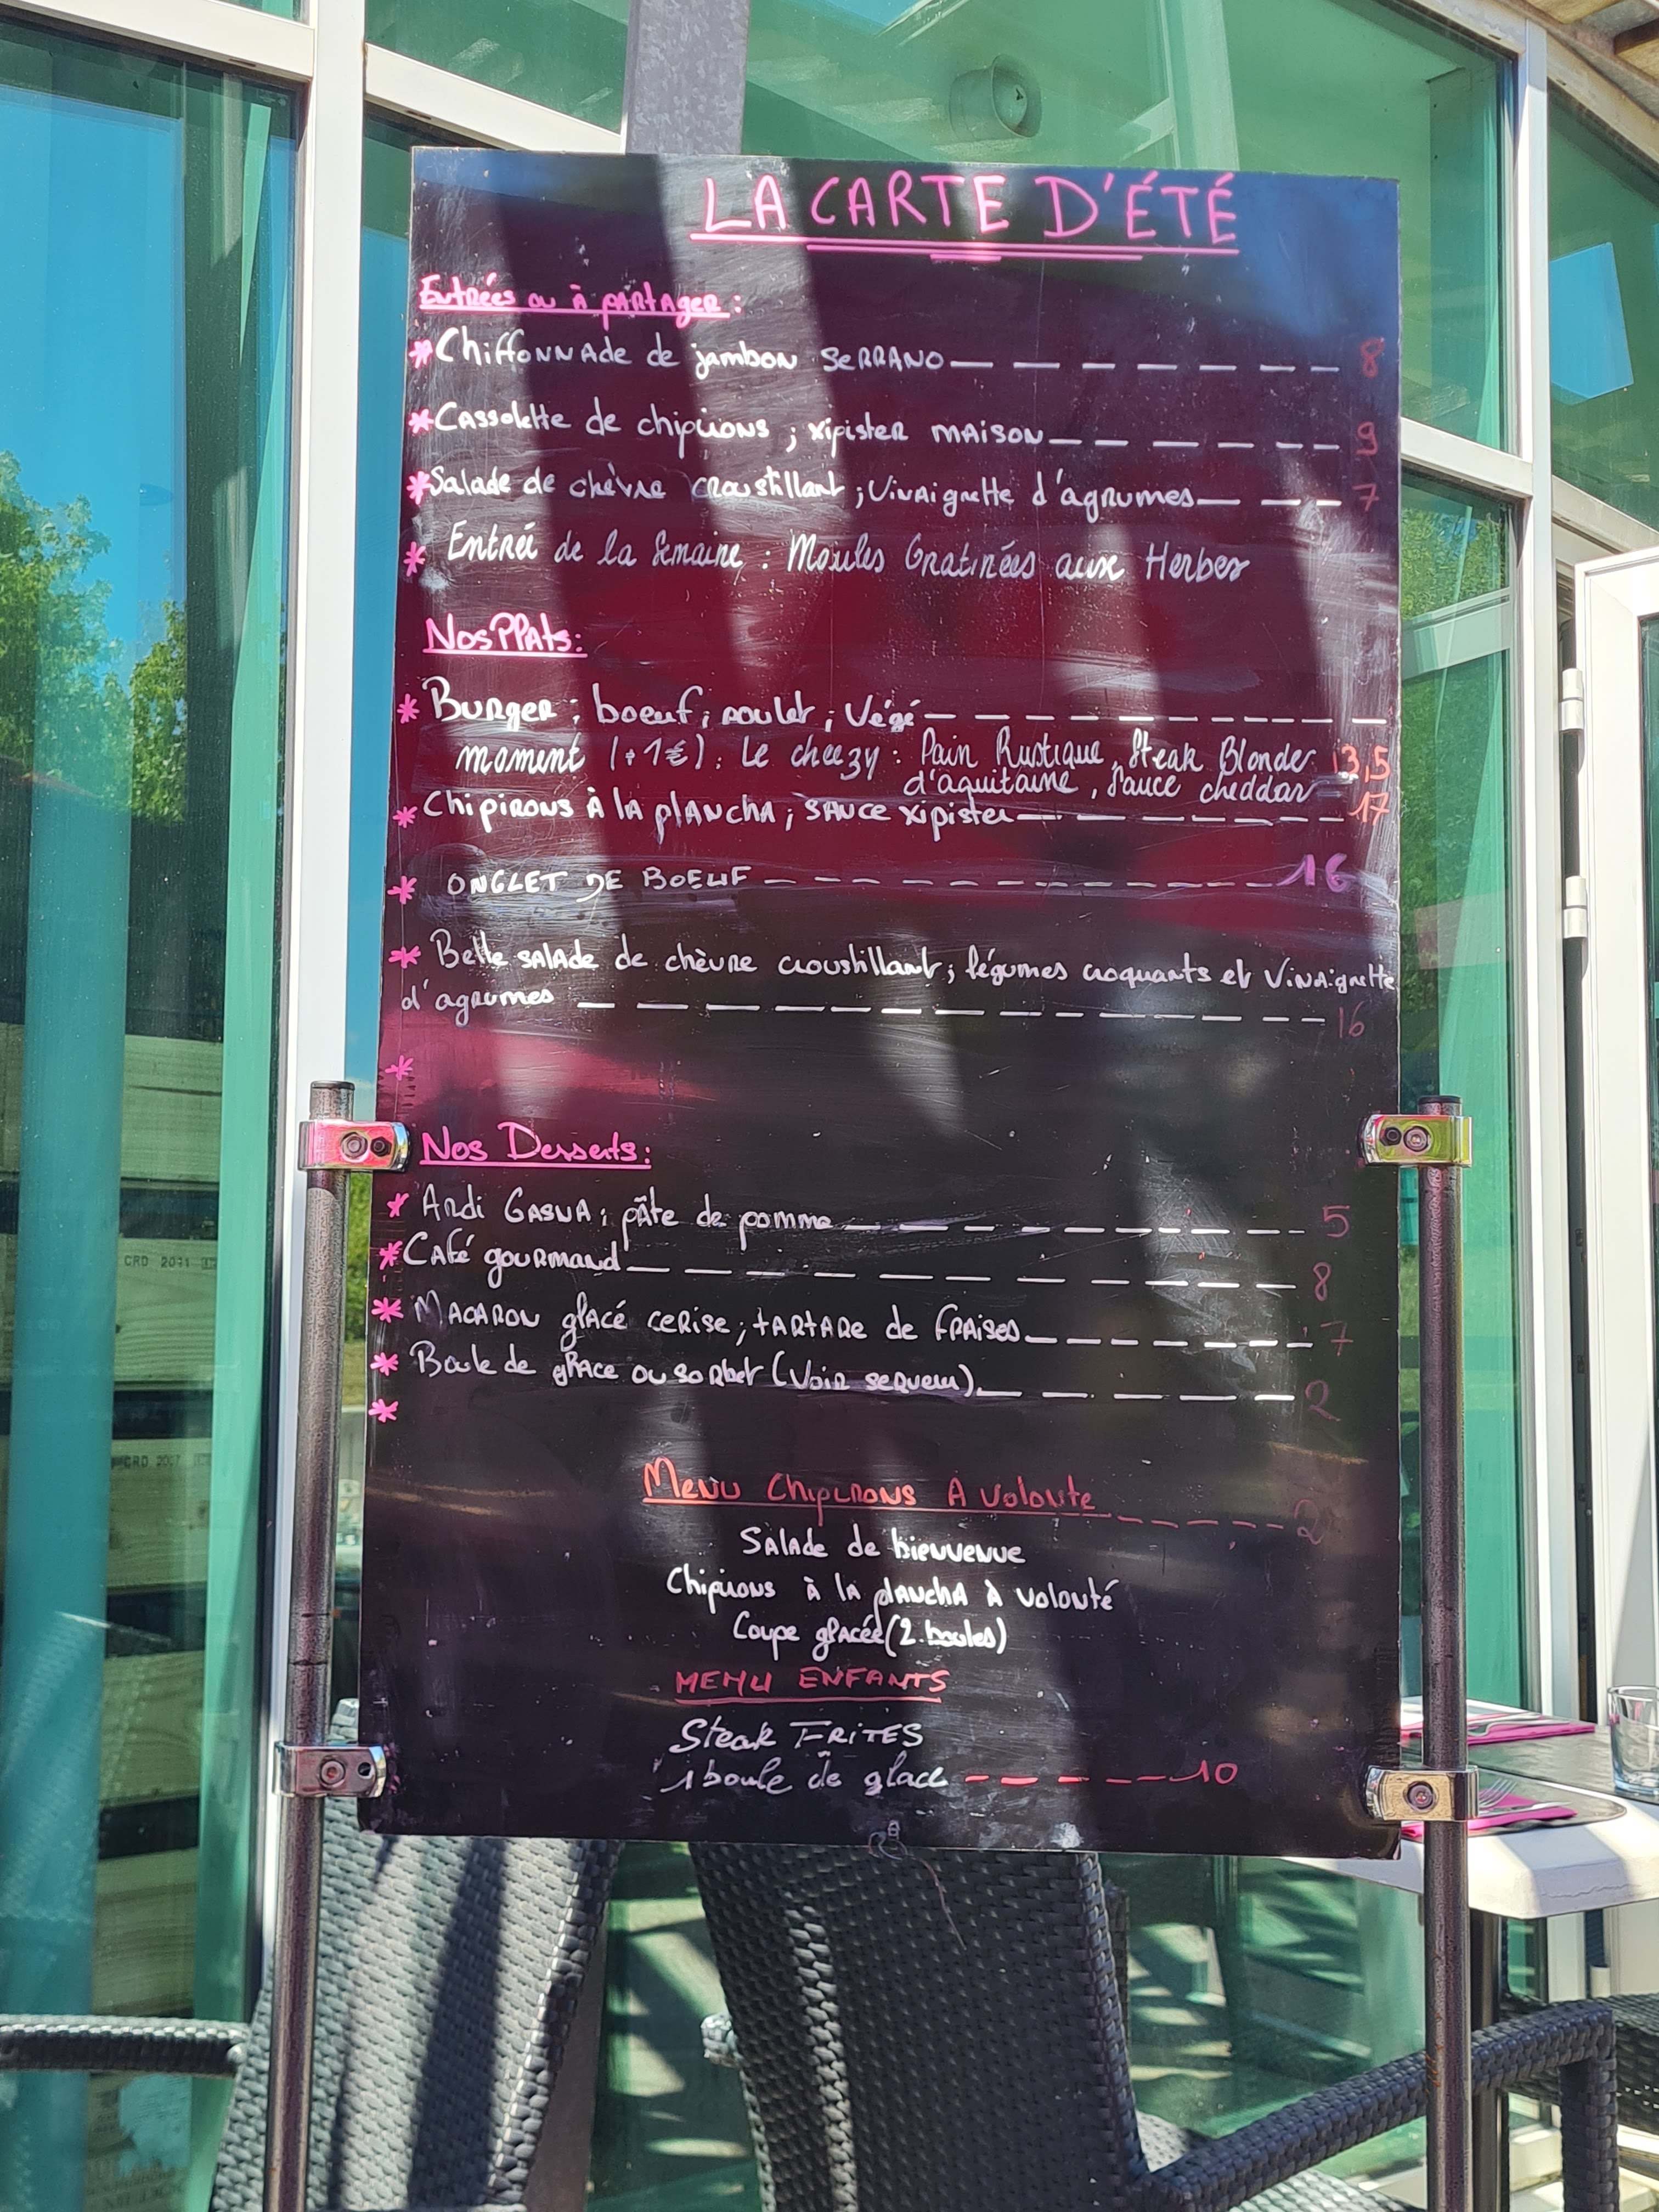 LA CARTE D'ÉTÉ
Entrées ou à partager :
* Chiffonnade de jambon SERRANO _ _ _ _ _ _ _ 8
* Cassolette de chipirons ; xipister maison _ _ _ _ _ _ 9
* Salade de chèvre croustillant ; Vinaigrette d'agrumes _ _ _ 7
* Entrée de la Semaine : Moules Gratinées aux Herbes
Nos Plats :
* Burger ; boeuf ; poulet ; Végé _ _ _ _ _ _ _ _ _ _
moment (+1€) : Le cheezy : Pain Rustique, Steak Blonde 13,5
d'aquitaine, Sauce cheddar
* Chipirons à la plancha ; sauce xipister _ _ _ _ _ _ _ 17
* ONGLET DE BOEUF _ _ _ _ _ _ _ _ _ _ _ 16
* Belle salade de chèvre croustillant ; légumes croquants et Vinaigrette
d'agrumes _ _ _ _ _ _ _ _ _ _ _ _ _ 16
*
Nos Desserts :
* Ardi Gasna ; pâte de pomme _ _ _ _ _ _ _ _ _ 5
* Café gourmand _ _ _ _ _ _ _ _ _ _ _ 8
* Macaron glacé cerise ; tartare de fraises _ _ _ _ _ _ _ 7
* Boule de glace ou sorbet (Voir serveur) _ _ _ _ _ _ 2
*
Menu Chipirons A Volonte _ _ _ _ _ _
Salade de bienvenue
Chipirons à la plancha à volonté
Coupe glacée (2 boules)
MENU ENFANTS
Steak FRITES
1 boule de glace _ _ _ _ _ 10